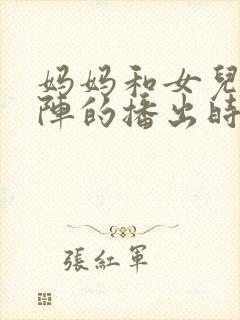 妈妈和女兒
陣的播出時
張紅軍